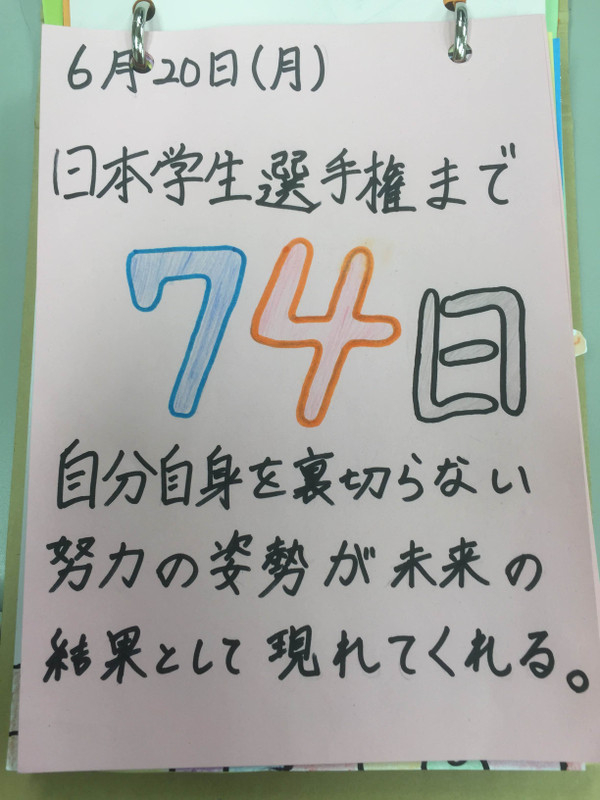 6月20日(月)
日本学生選手権まで
74日
自分自身を裏切らない
努力の姿勢が未来の
結果として現れてくれる。